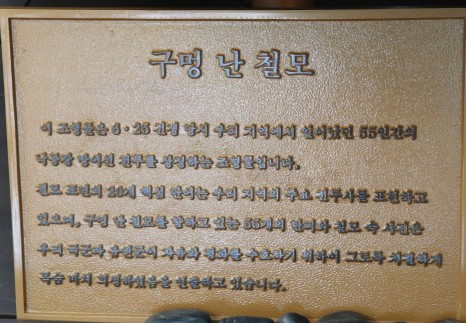 구멍 난 철모
이 조형물은 6·25 전쟁 당시 우리 지역에서 일어났던 55일간의
낙동강 방어선 전투를 상징하는 조형물입니다.
철모 표면의 20개 핵심 단어는 우리 지역의 주요 전투사를 표현하고
있으며, 구멍 난 철모를 향하고 있는 55개의 탄피와 철모 속 사진은
우리 국군과 유엔군이 자유와 평화를 수호하기 위하여 그토록 처절하게
목숨 바쳐 희생하였음을 연출하고 있습니다.